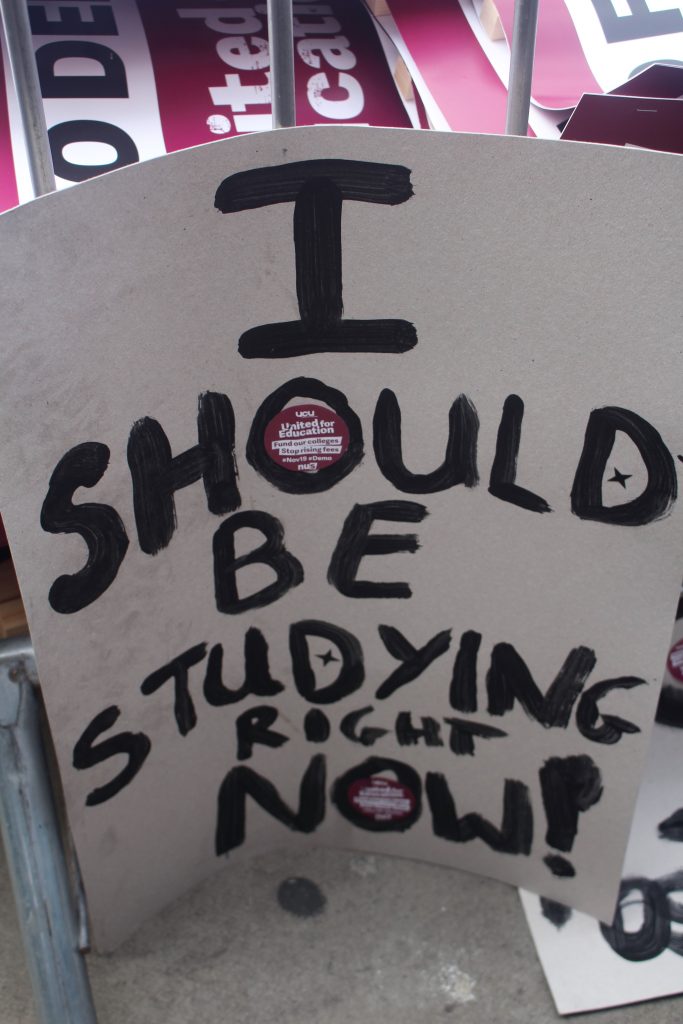 O DE
ited
cati
I
SHOULD
ucu
United for
Education
Fund our colleges
Stop rising fees
#Nov19 #Demo
nus
BE
STUDYING
RIGHT
NOW!